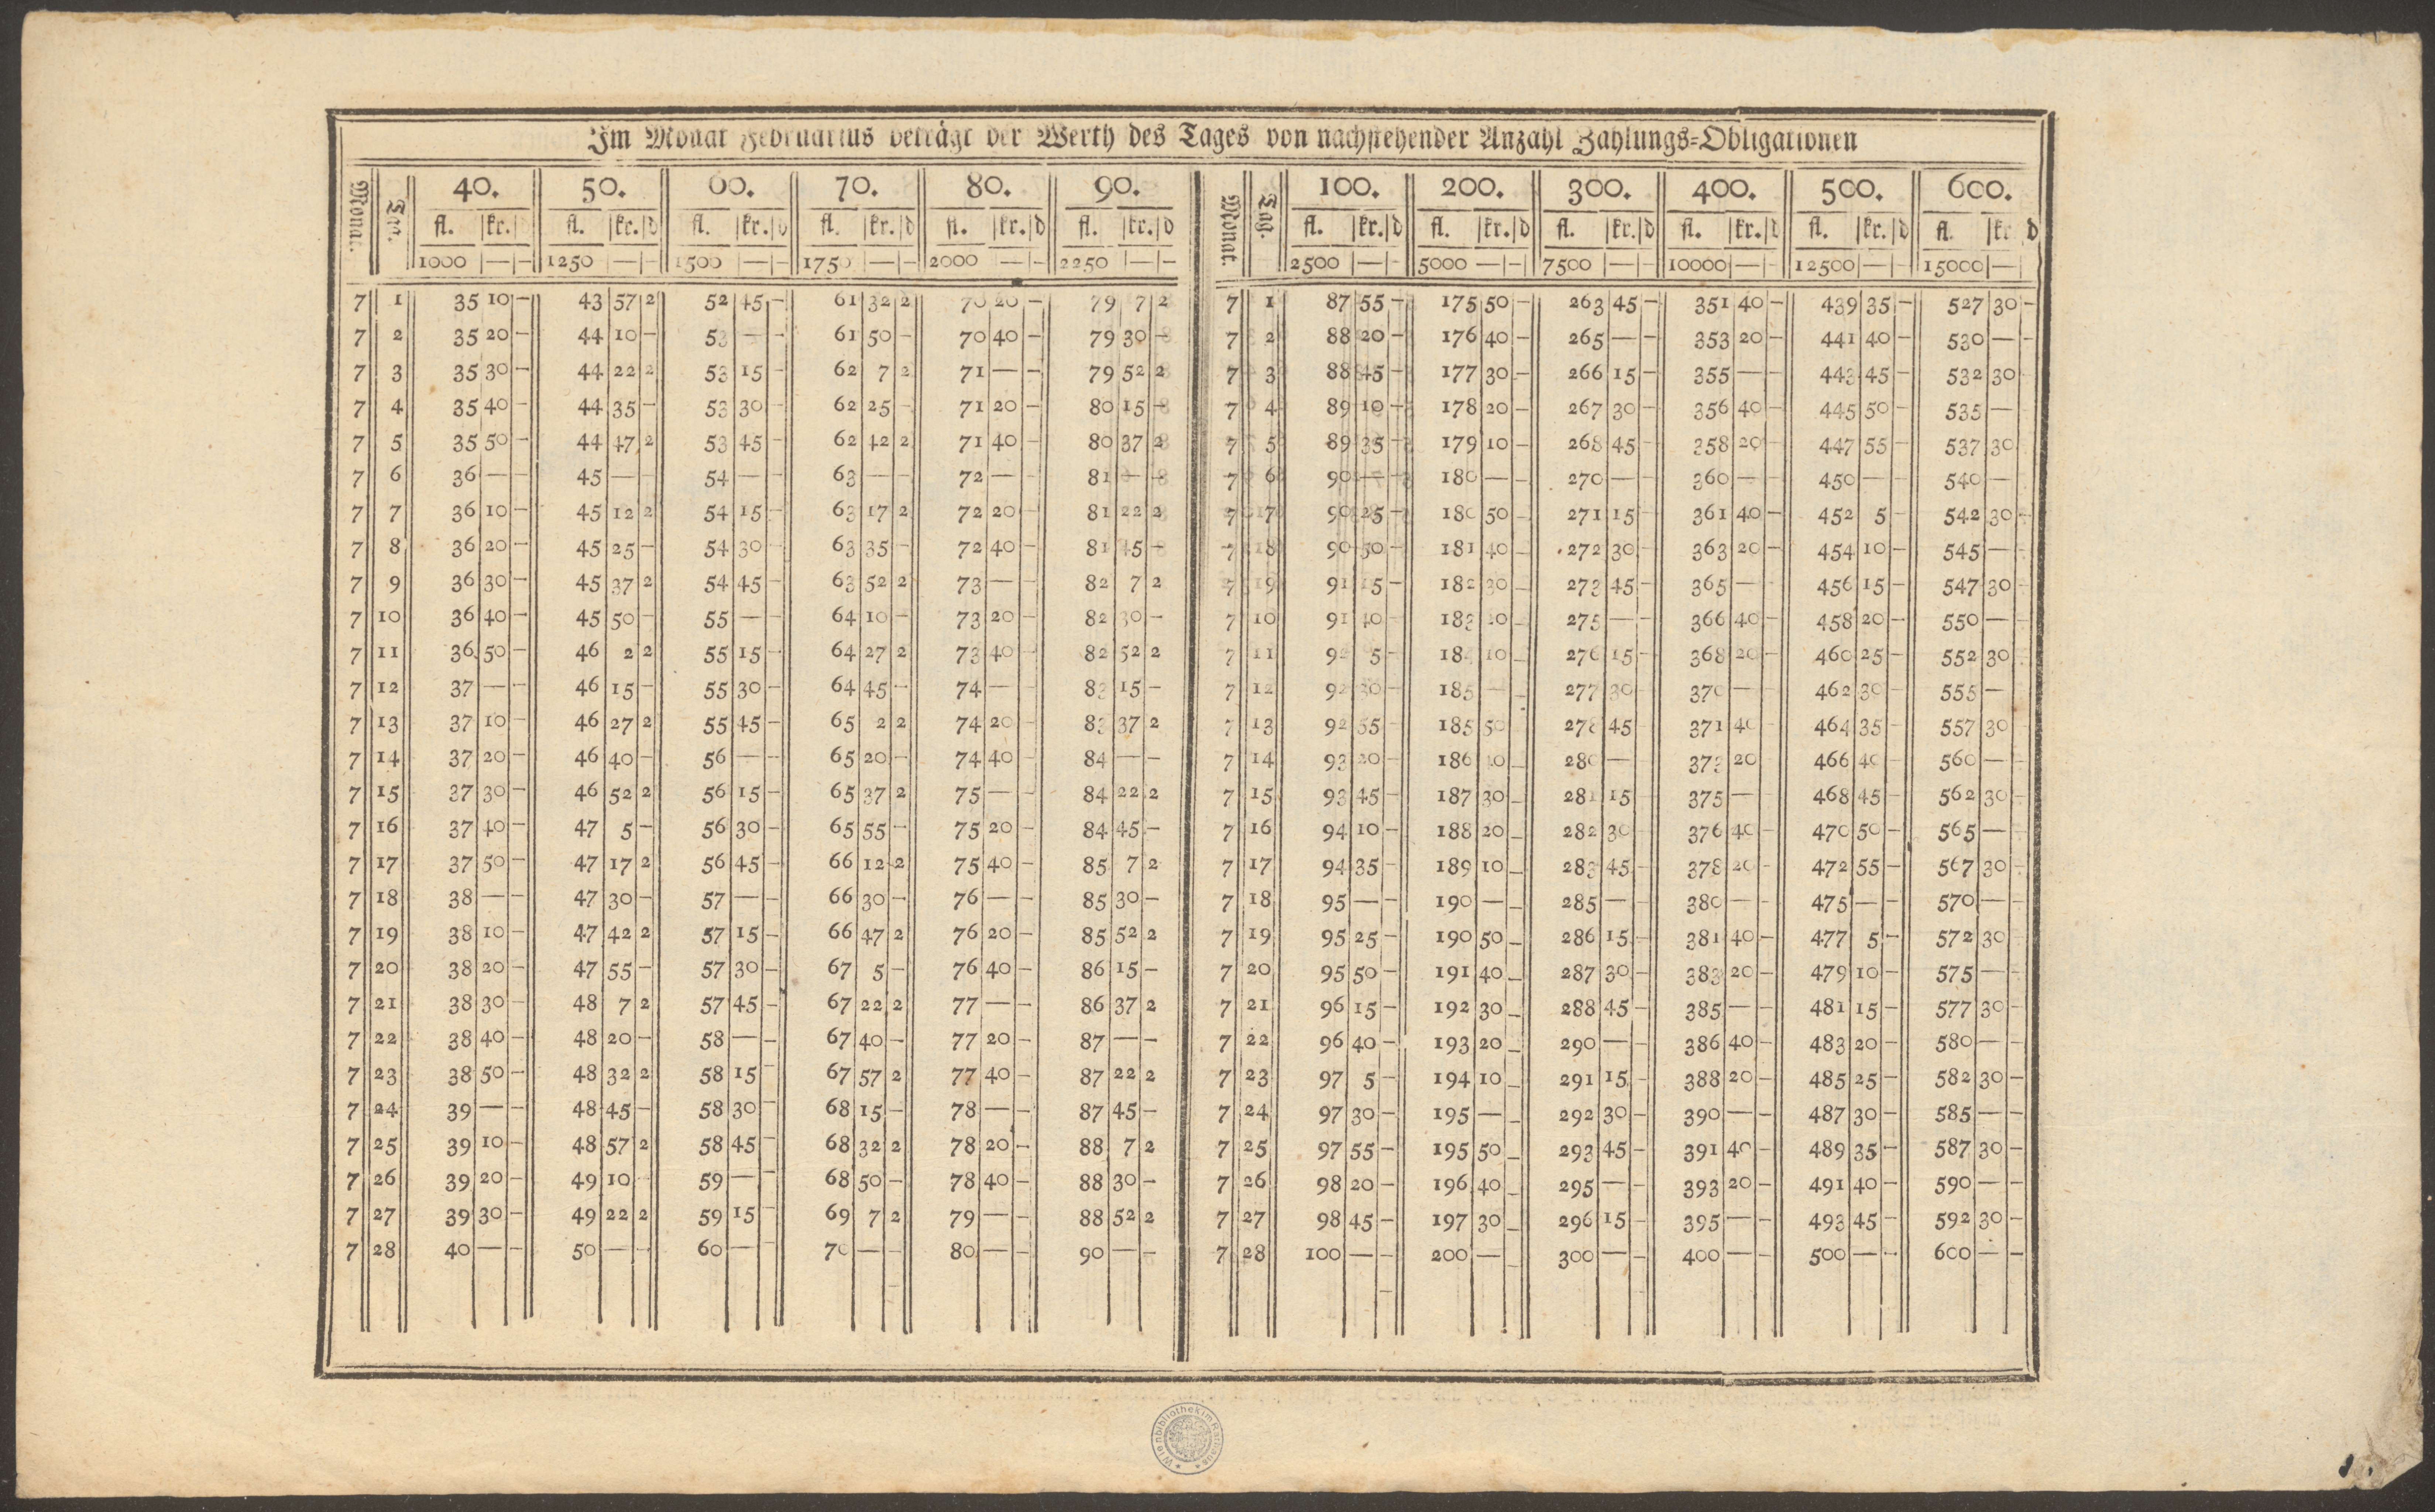 Im Monat Februarius beträgt der Werth des Tages von nachstehender Anzahl Zahlungs-Obligationen
Monat. Tag. 40. 50. 60. 70. 80. 90. Monat. Tag. 100. 200. 300. 400. 500. 600.
fl. kr. fl. kr. d fl. kr. d fl. kr. d fl. kr. d fl. kr. d fl. kr. d fl. kr. d fl. kr. d fl. kr. d fl. kr. d fl. kr d
1000 — — 1250 — — 1500 — — 1750 — — 2000 — — 2250 — — 2500 — — 5000 — — 7500 — — 10000 — — 12500 — — 15000 —
7 1 35 10 — 43 57 2 52 45 — 61 32 2 70 20 — 79 7 2 7 1 87 55 — 175 50 — 263 45 — 351 40 — 439 35 — 527 30 —
7 2 35 20 — 44 10 — 53 — — 61 50 — 70 40 — 79 30 — 7 2 88 20 — 176 40 — 265 — — 353 20 — 441 40 — 530 — —
7 3 35 30 — 44 22 2 53 15 — 62 7 2 71 — — 79 52 2 7 3 88 45 — 177 30 — 266 15 — 355 — — 443 45 — 532 30
7 4 35 40 — 44 35 — 53 30 — 62 25 — 71 20 — 80 15 — 7 4 89 10 — 178 20 — 267 30 — 356 40 — 445 50 — 535 —
7 5 35 50 — 44 47 2 53 45 — 62 42 2 71 40 — 80 37 2 7 5 89 35 — 179 10 — 268 45 — 358 20 — 447 55 — 537 30
7 6 36 — — 45 — — 54 — — 63 — — 72 — — 81 — — 7 6 90 — — 180 — — 270 — — 360 — — 450 — — 540 —
7 7 36 10 — 45 12 2 54 15 — 63 17 2 72 20 — 81 22 2 7 7 90 25 — 180 50 — 271 15 — 361 40 — 452 5 — 542 30 —
7 8 36 20 — 45 25 — 54 30 — 63 35 — 72 40 — 81 45 — 7 8 90 50 — 181 40 — 272 30 — 363 20 — 454 10 — 545 — —
7 9 36 30 — 45 37 2 54 45 — 63 52 2 73 — — 82 7 2 7 9 91 15 — 182 30 — 273 45 — 365 — — 456 15 — 547 30 —
7 10 36 40 — 45 50 — 55 — — 64 10 — 73 20 — 82 30 — 7 10 91 40 — 183 20 — 275 — — 366 40 — 458 20 — 550 — —
7 11 36 50 — 46 2 2 55 15 — 64 27 2 73 40 — 82 52 2 7 11 92 5 — 184 10 — 276 15 — 368 20 — 460 25 — 552 30
7 12 37 — — 46 15 — 55 30 — 64 45 — 74 — — 83 15 — 7 12 92 30 — 185 — — 277 30 — 370 — — 462 30 — 555 —
7 13 37 10 — 46 27 2 55 45 — 65 2 2 74 20 — 83 37 2 7 13 92 55 — 185 50 278 45 — 371 40 — 464 35 — 557 30
7 14 37 20 — 46 40 — 56 — — 65 20 — 74 40 — 84 — — 7 14 93 20 — 186 40 — 280 — 373 20 466 40 — 560 — —
7 15 37 30 — 46 52 2 56 15 — 65 37 2 75 — — 84 22 2 7 15 93 45 — 187 30 — 281 15 — 375 — — 468 45 — 562 30 —
7 16 37 40 — 47 5 — 56 30 — 65 55 — 75 20 — 84 45 — 7 16 94 10 — 188 20 — 282 30 — 376 40 — 470 50 — 565 — —
7 17 37 50 — 47 17 2 56 45 — 66 12 2 75 40 — 85 7 2 7 17 94 35 — 189 10 — 283 45 — 378 20 — 472 55 — 567 30 —
7 18 38 — — 47 30 — 57 — — 66 30 — 76 — — 85 30 — 7 18 95 — — 190 — — 285 — — 380 — — 475 — — 570 — —
7 19 38 10 — 47 42 2 57 15 — 66 47 2 76 20 — 85 52 2 7 19 95 25 — 190 50 — 286 15 — 381 40 — 477 5 — 572 30 —
7 20 38 20 — 47 55 — 57 30 — 67 5 — 76 40 — 86 15 — 7 20 95 50 — 191 40 — 287 30 — 383 20 — 479 10 — 575 — —
7 21 38 30 — 48 7 2 57 45 — 67 22 2 77 — — 86 37 2 7 21 96 15 — 192 30 — 288 45 — 385 — — 481 15 — 577 30 —
7 22 38 40 — 48 20 — 58 — — 67 40 — 77 20 — 87 — — 7 22 96 40 — 193 20 — 290 — — 386 40 — 483 20 — 580 — —
7 23 38 50 — 48 32 2 58 15 — 67 57 2 77 40 — 87 22 2 7 23 97 5 — 194 10 — 291 15 — 388 20 — 485 25 — 582 30 —
7 24 39 — — 48 45 — 58 30 — 68 15 — 78 — — 87 45 — 7 24 97 30 — 195 — — 292 30 — 390 — — 487 30 — 585 — —
7 25 39 10 — 48 57 2 58 45 — 68 32 2 78 20 — 88 7 2 7 25 97 55 — 195 50 — 293 45 — 391 40 — 489 35 — 587 30 —
7 26 39 20 — 49 10 — 59 — — 68 50 — 78 40 — 88 30 — 7 26 98 20 — 196 40 — 295 — — 393 20 — 491 40 — 590 — —
7 27 39 30 — 49 22 2 59 15 — 69 7 2 79 — — 88 52 2 7 27 98 45 — 197 30 — 296 15 — 395 — — 493 45 — 592 30 —
7 28 40 — — 50 — — 60 — — 70 — — 80 — — 90 — — 7 28 100 — — 200 — — 300 — — 400 — — 500 — — 600 — —
Wienbibliothek im Rathaus